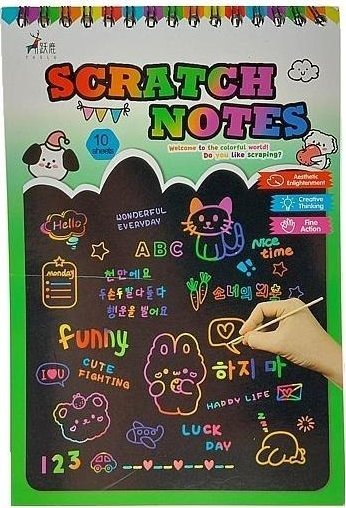 跃鹿
SCRATCH
NOTES
10
sheets
Welcome to the colorful world!
Do you like scraping?
Aesthetic
Enlightenment
Creative
Thinking
Fine
Action
Hello
WONDERFUL
EVERYDAY
ABC
Nice
time
monday
천만에요
두손두발다들다
행운을 빌어요
소녀의
funny
I U
CUTE
FIGHTING
하지 마
HAPPY LIFE
LUCK
DAY
123